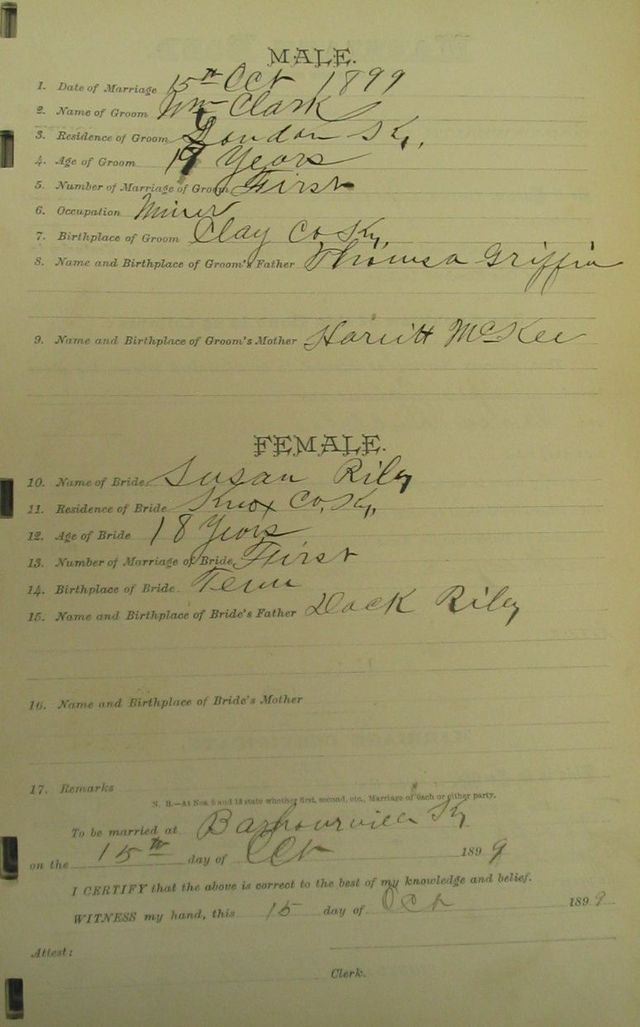 MALE.
1. Date of Marriage 15th Oct 1899
2. Name of Groom Wm Clark
3. Residence of Groom London Ky.
4. Age of Groom 19 Years
5. Number of Marriage of Groom First
6. Occupation Miner
7. Birthplace of Groom Clay Co Ky,
8. Name and Birthplace of Groom's Father Griffin
9. Name and Birthplace of Groom's Mother Harritt McKee
FEMALE.
10. Name of Bride Susan Riley
11. Residence of Bride Knox Co, Ky,
12. Age of Bride 18 Years
13. Number of Marriage of Bride First
14. Birthplace of Bride. Tenn
15. Name and Birthplace of Bride's Father Dock Riley
16. Name and Birthplace of Bride's Mother
17. Remarks
N. B.—At Nos. 5 and 13 state whether first, second, etc., Marriage of each or either party.
To be married at Barbourville Ky
on the 15th day of Oct 1899
I CERTIFY that the above is correct to the best of my knowledge and belief.
WITNESS my hand, this 15 day of Oct 1899
Attest:
Clerk.